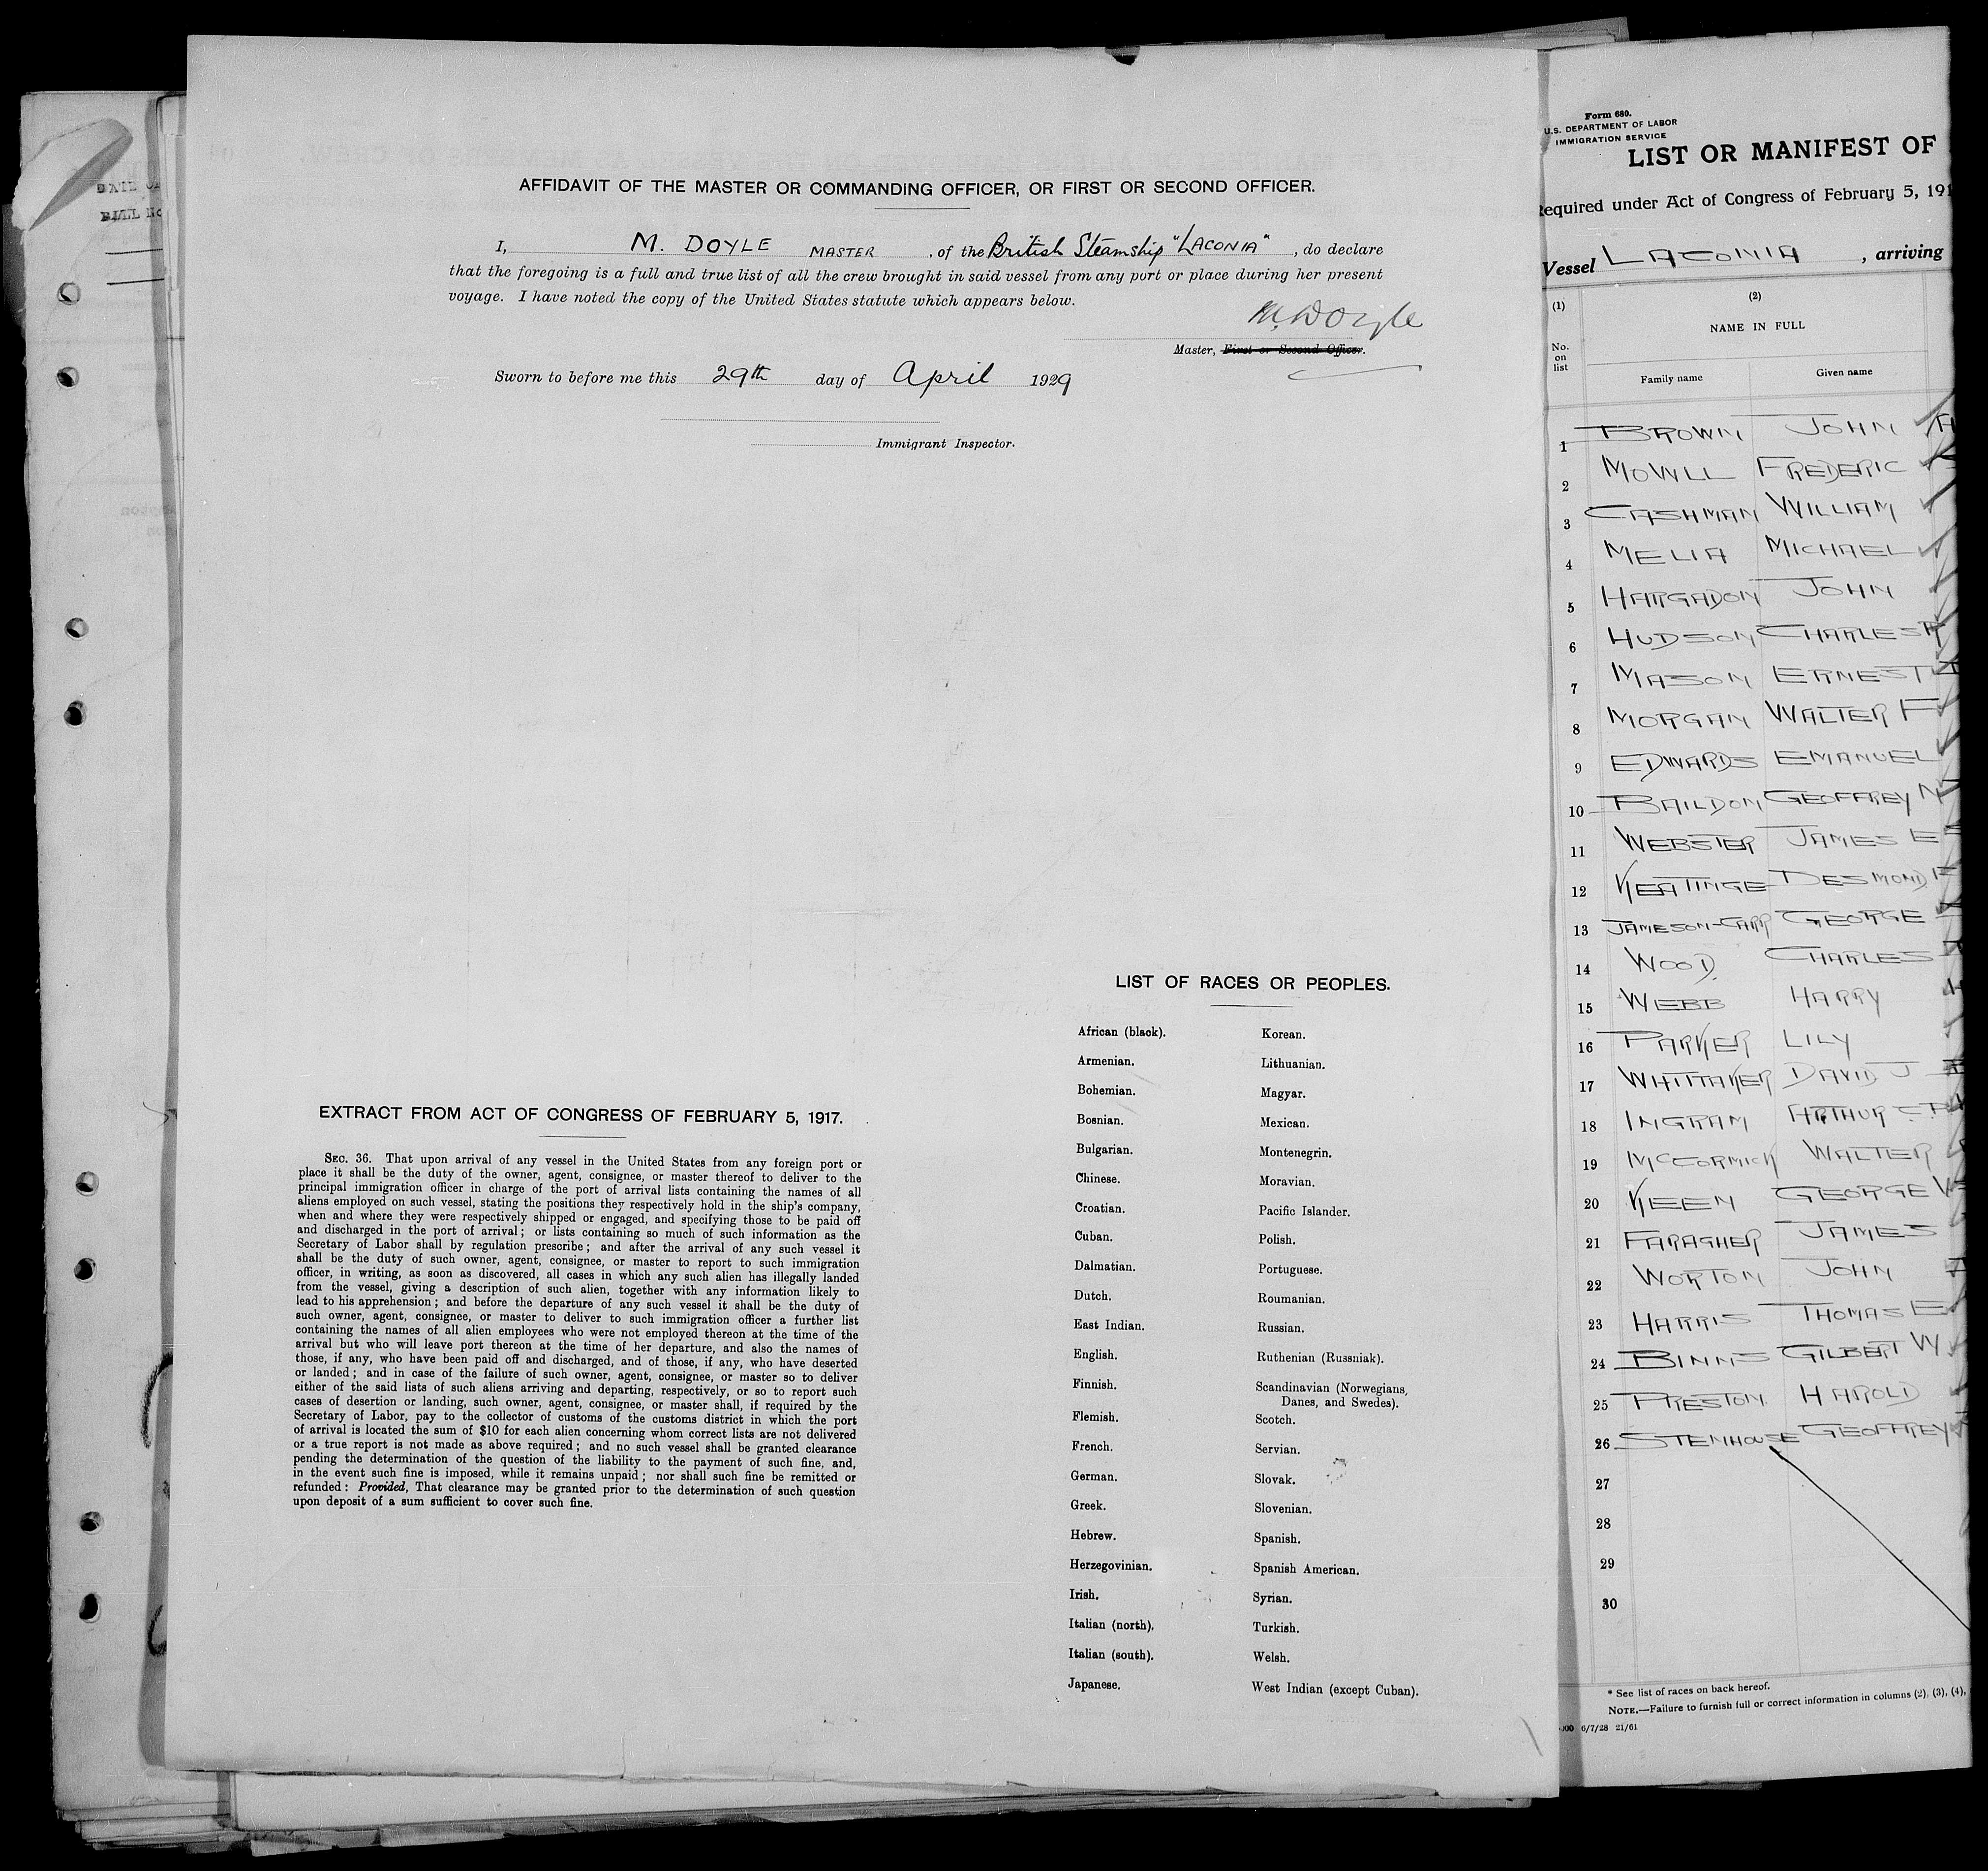 AFFIDAVIT OF THE MASTER OR COMMANDING OFFICER, OR FIRST OR SECOND OFFICER.
I, M. DOYLE MASTER, of the British Steamship "LACONIA", do declare
that the foregoing is a full and true list of all the crew brought in said vessel from any port or place during her present
voyage. I have noted the copy of the United States statute which appears below.
M. Doyle
Master, First or Second Officer.
Sworn to before me this 29th day of April 1929
Immigrant Inspector.
EXTRACT FROM ACT OF CONGRESS OF FEBRUARY 5, 1917.
SEC. 36. That upon arrival of any vessel in the United States from any foreign port or
place it shall be the duty of the owner, agent, consignee, or master thereof to deliver to the
principal immigration officer in charge of the port of arrival lists containing the names of all
aliens employed on such vessel, stating the positions they respectively hold in the ship's company,
when and where they were respectively shipped or engaged, and specifying those to be paid off
and discharged in the port of arrival; or lists containing so much of such information as the
Secretary of Labor shall by regulation prescribe; and after the arrival of any such vessel it
shall be the duty of such owner, agent, consignee, or master to report to such immigration
officer, in writing, as soon as discovered, all cases in which any such alien has illegally landed
from the vessel, giving a description of such alien, together with any information likely to
lead to his apprehension; and before the departure of any such vessel it shall be the duty of
such owner, agent, consignee, or master to deliver to such immigration officer a further list
containing the names of all alien employees who were not employed thereon at the time of the
arrival but who will leave port thereon at the time of her departure, and also the names of
those, if any, who have been paid off and discharged, and of those, if any, who have deserted
or landed; and in case of the failure of such owner, agent, consignee, or master so to deliver
either of the said lists of such aliens arriving and departing, respectively, or so to report such
cases of desertion or landing, such owner, agent, consignee, or master shall, if required by the
Secretary of Labor, pay to the collector of customs of the customs district in which the port
of arrival is located the sum of $10 for each alien concerning whom correct lists are not delivered
or a true report is not made as above required; and no such vessel shall be granted clearance
pending the determination of the question of the liability to the payment of such fine, and,
in the event such fine is imposed, while it remains unpaid; nor shall such fine be remitted or
refunded: Provided, That clearance may be granted prior to the determination of such question
upon deposit of a sum sufficient to cover such fine.
LIST OF RACES OR PEOPLES.
African (black). Korean.
Armenian. Lithuanian.
Bohemian. Magyar.
Bosnian. Mexican.
Bulgarian. Montenegrin.
Chinese. Moravian.
Croatian. Pacific Islander.
Cuban. Polish.
Dalmatian. Portuguese.
Dutch. Roumanian.
East Indian. Russian.
English. Ruthenian (Russniak).
Finnish. Scandinavian (Norwegians,
Danes, and Swedes).
Flemish. Scotch.
French. Servian.
German. Slovak.
Greek. Slovenian.
Hebrew. Spanish.
Herzegovinian. Spanish American.
Irish. Syrian.
Italian (north). Turkish.
Italian (south). Welsh.
Japanese. West Indian (except Cuban).
Form 680.
U.S. DEPARTMENT OF LABOR
IMMIGRATION SERVICE
LIST OR MANIFEST OF
Required under Act of Congress of February 5, 191
Vessel LACONIA, arriving
(1) (2)
NAME IN FULL
No.
on
list
Family name Given name
1 BROWN JOHN
2 MOWLL FREDERIC
3 CASHMAN WILLIAM
4 MELIA MICHAEL
5 HARGADON JOHN
6 HUDSON CHARLES
7 MASON ERNEST
8 MORGAN WALTER F
9 EDWARDS EMANUEL
10 BAILDON GEOFFREY N
11 WEBSTER JAMES E
12 KEATINGE DESMOND F
13 JAMESON-CARR GEORGE
14 WOOD CHARLES
15 WEBB HARRY
16 PARKER LILY
17 WHITTAKER DAVID J
18 INGRAM ARTHUR C
19 McCORMICK WALTER
20 KEEN GEORGE V
21 FARAGHER JAMES
22 WORTON JOHN
23 HARRIS THOMAS E
24 BINNS GILBERT W
25 PRESTON HAROLD
26 STENHOUSE GEOFFREY
27
28
29
30
* See list of races on back hereof.
NOTE.—Failure to furnish full or correct information in columns (2), (3), (4),
000 6/7/28 21/61